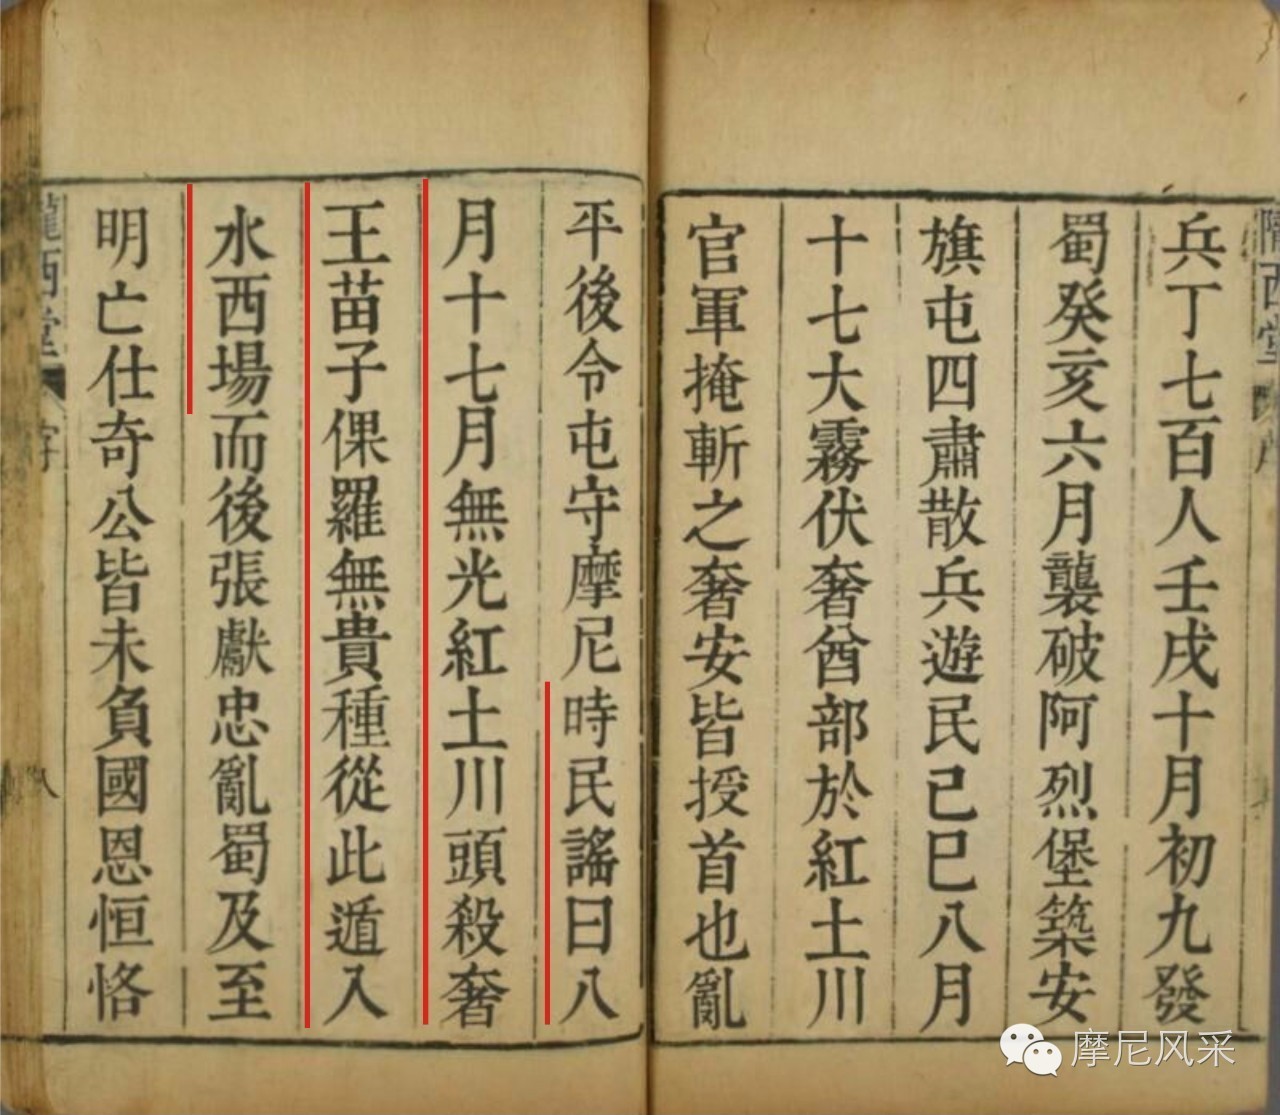 兵丁七百人壬戌十月初九發
蜀癸亥六月襲破阿烈堡築安
旗屯四肅散兵遊民己巳八月
十七大霧伏奢酋部於紅土川
官軍掩斬之奢安皆授首也亂
平後令屯守摩尼時民謠曰八
月十七月無光紅土川頭殺奢
王苗子倮羅無貴種從此遁入
水西場而後張獻忠亂蜀及至
明亡仕奇公皆未負國恩恒恪
隴西堂
摩尼风采